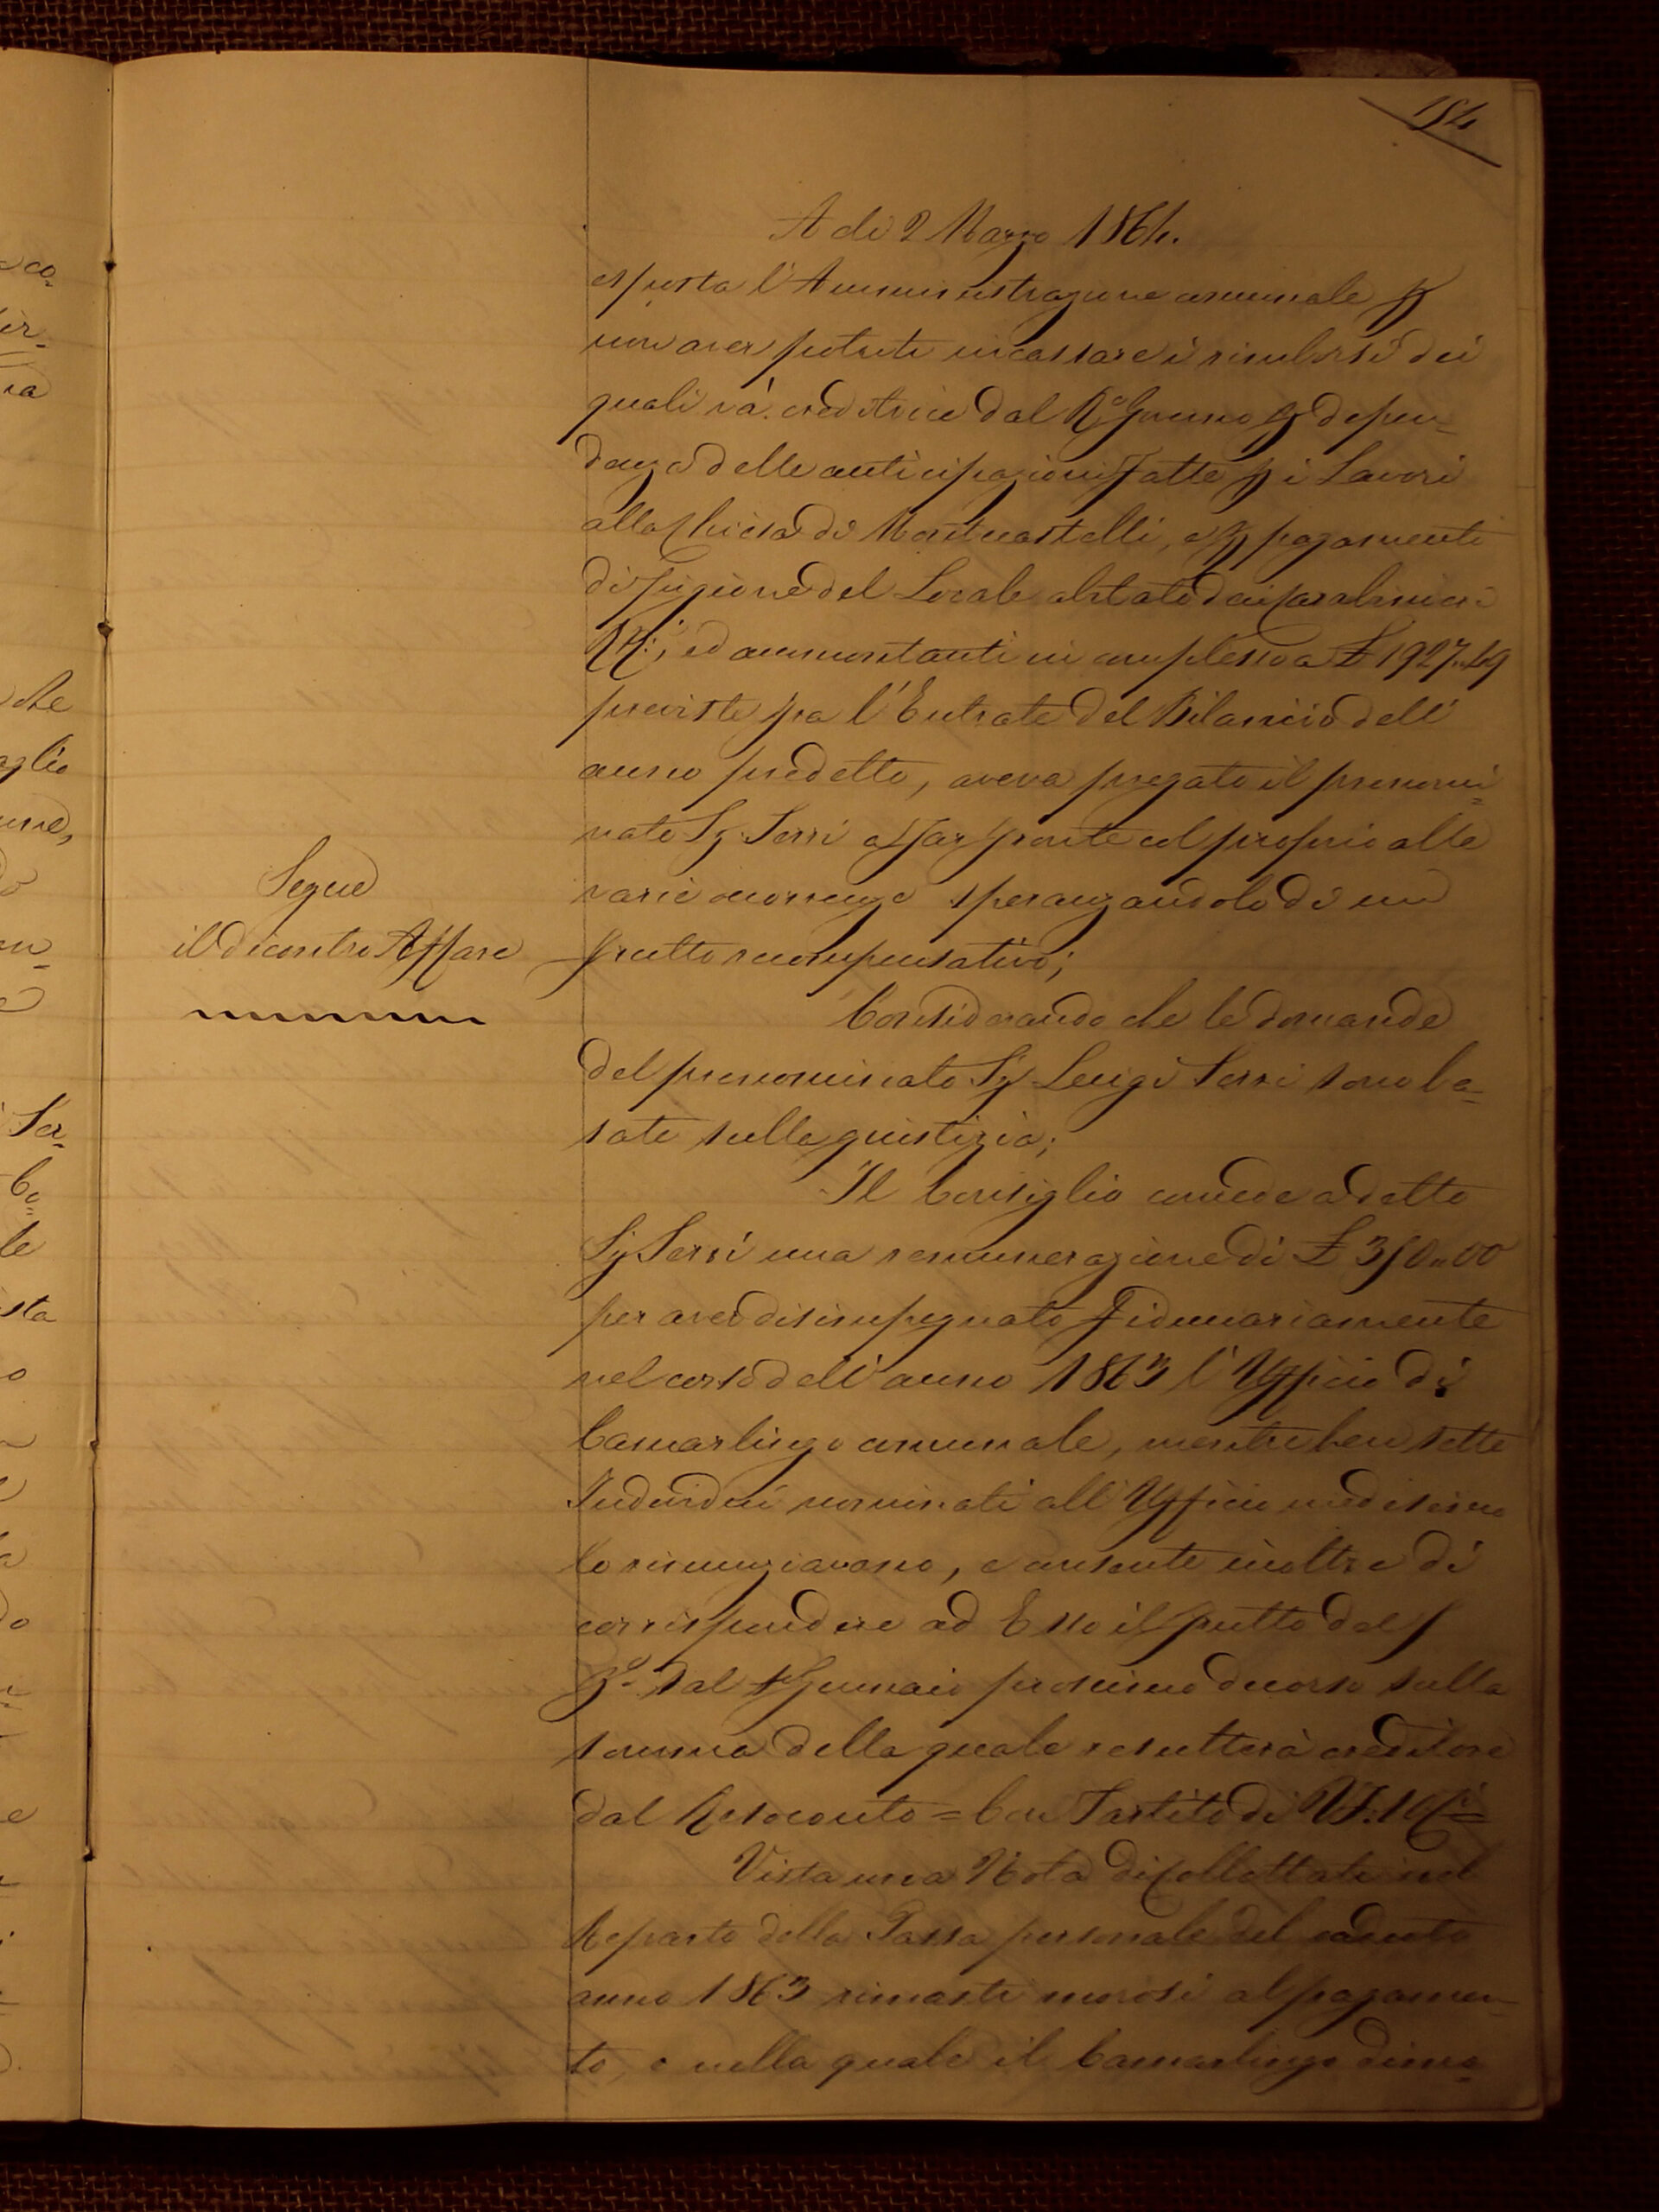 154
A dì 2 Marzo 1864.
esposta l'Amministrazione comunale p
non aver potuto incassare i rimborsi dei
quali và creditrice dal R.º Governo p dipen-
denza delle anticipazioni fatte p i Lavori
alla Chiesa di Montecastelli, e p pagamenti
di pigione del Locale abitato dai Carabinieri
RR:, ed ammontanti in complesso a £ 1927.49
previste fra l'Entrate del Bilancio dell'
anno predetto, aveva pregato il prenomi=
nato Sig. Serri a far fronte col proprio alle
varie occorrenze speranzandolo di un
Segue
il dicontro Affare
frutto recompensativo;
Considerando che le domande
del prenominato Sig. Luigi Serri sono ba=
sate sulla giustizia;
Il Consiglio concede a detto
Sig Serri una remunerazione di £ 350.00
per aver disimpegnato fiduciariamente
nel corso dell'anno 1863 l'Uffizio di
Camarlingo comunale, mentre ben sette
Individui nominati all'Ufficio medesimo
lo rinunziavano, e consente inoltre di
corrispondere ad Esso il frutto del 5
p.º dal 1º Gennaio prossimo decorso sulla
somma della quale resulterà creditore
dal Resoconto = Con Partito di
Vista una Nota di Collettati nel
Reparto della Tassa personale del caduto
anno 1863 rimasti morosi al pagamen-
to, e nella quale il Camarlingo dimo=